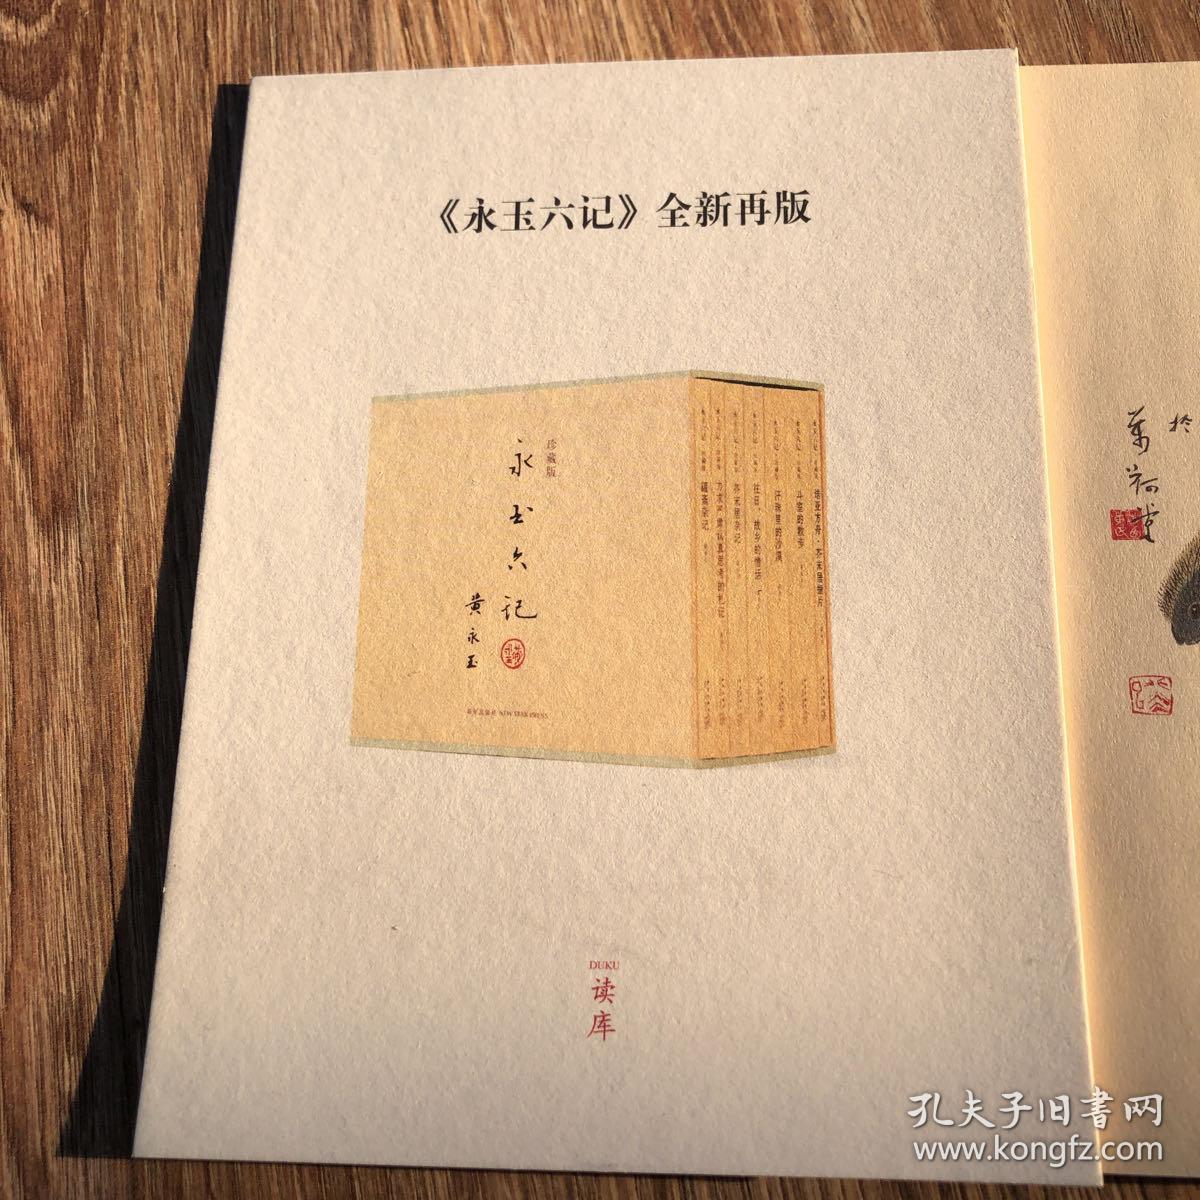 《永玉六记》全新再版
珍藏版
永玉六记
黄永玉
新星出版社 NEW STAR PRESS
罐斋杂记
力求严肃认真思考的札记
芥末居杂记
往日,故乡的情话
汗珠里的沙漠
斗室的散步
诺亚方舟·芥末居继片
DUKU
读库
於
万荷堂
孔夫子旧书网
www.kongfz.com